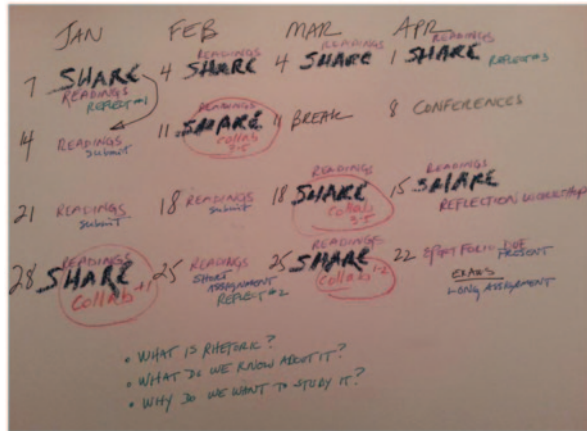 JAN FEB MAR APR
7 SHARE READINGS REFLECT #1
4 READINGS SHARE
4 READINGS SHARE
1 READINGS SHARE REFLECT #3
14 READINGS submit
11 READINGS SHARE collab 3-5
11 BREAK
8 CONFERENCES
21 READINGS submit
18 READINGS submit
18 READINGS SHARE collab 3-5
15 READINGS SHARE REFLECTION WORKSHOP
28 READINGS SHARE collab +1
25 READINGS SHORT ASSIGNMENT REFLECT #2
25 READINGS SHARE collab 1-2
22 DUE PRESENT EXAMS LONG ASSIGNMENT
• WHAT IS RHETORIC?
• WHAT DO WE KNOW ABOUT IT?
• WHY DO WE WANT TO STUDY IT?